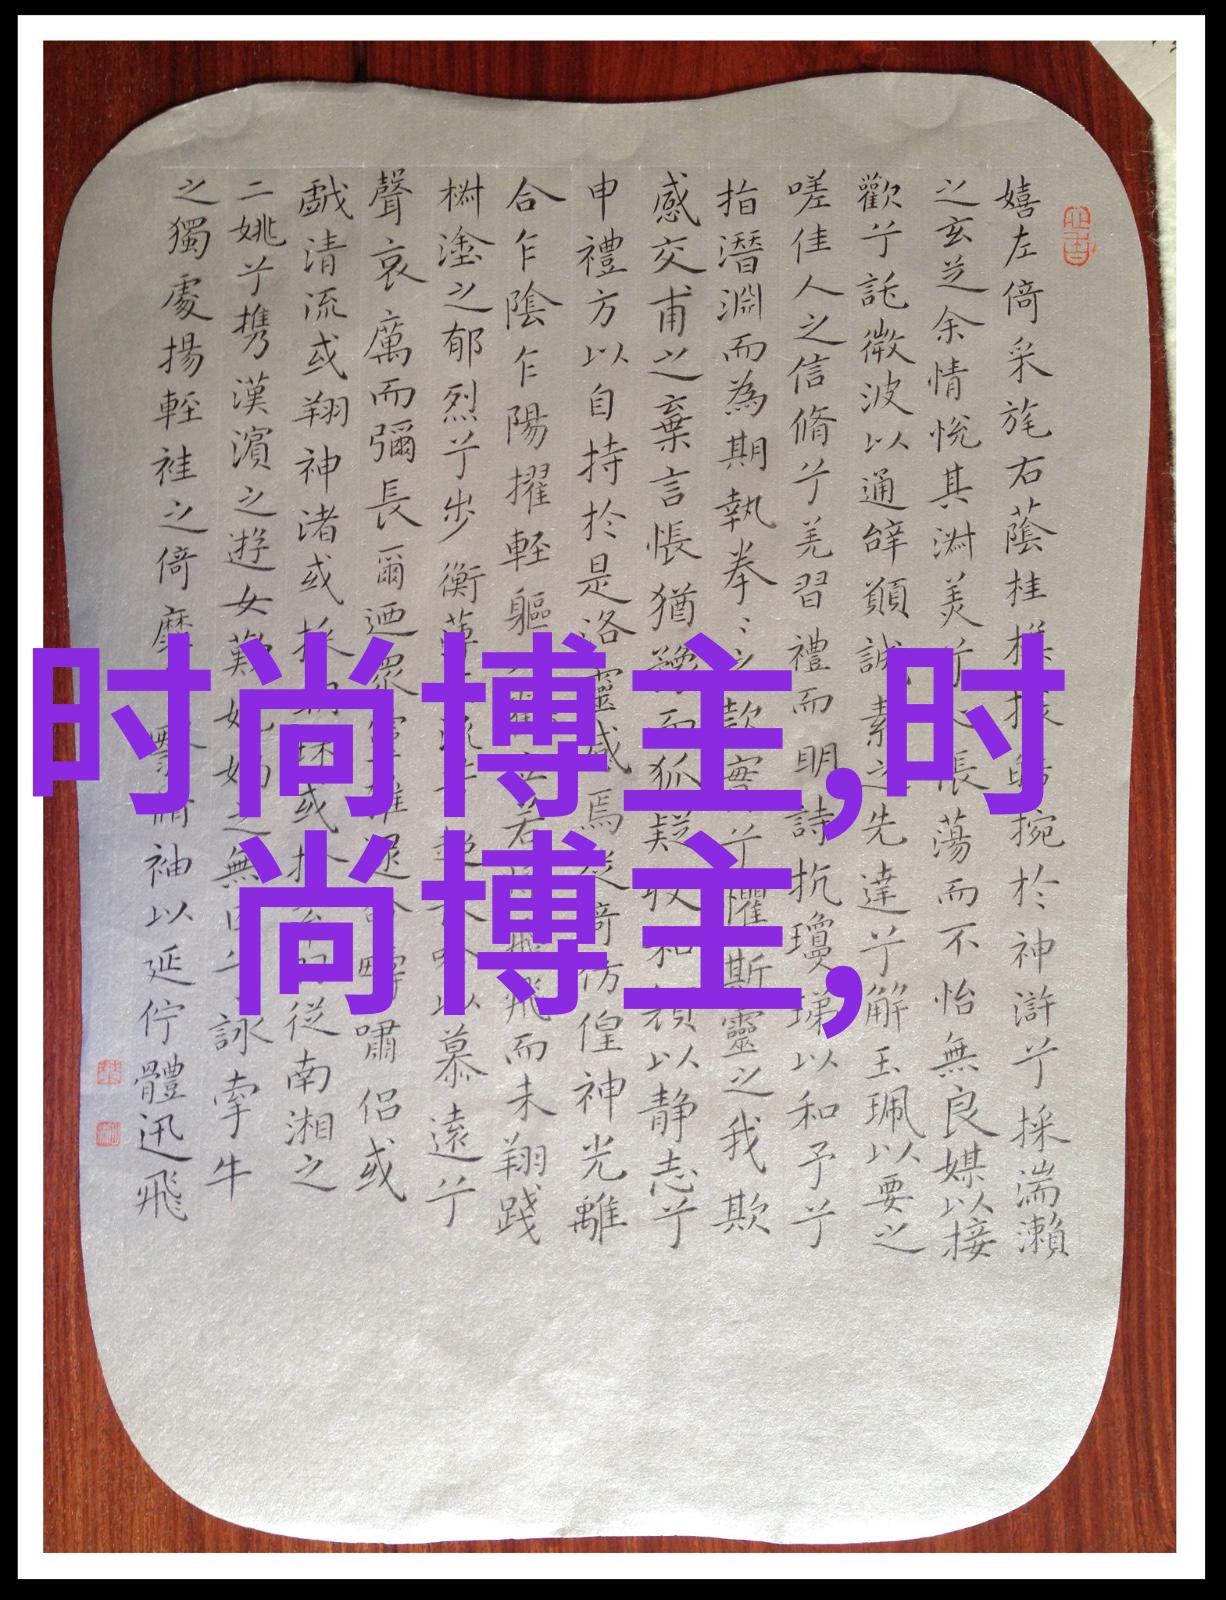 时尚博主,时
尚博主,
嬉左倚采旄右蔭桂旗攘皓捥於神滸兮採湍瀨
之玄芝余情悅其淑美兮心悵蕩而不怡無良媒以接
歡兮託微波以通辭願誠素之先達兮解玉珮以要之
嗟佳人之信脩兮羌習禮而明詩抗瓊珶以和予兮
指潛淵而為期執拳〻之款實兮懼斯靈之我欺
感交甫之棄言悵猶豫而狐疑收和顏以静志兮
申禮方以自持於是洛靈感焉徙倚仿偟神光離
合乍陰乍陽擢輕軀若飛而未翔踐
椒塗之郁烈兮步衡薄而流超長吟以慕遠兮
聲哀厲而彌長爾迺眾雜遝命疇嘯侶或
戲清流或翔神渚或採明珠或拾羽從南湘之
二姚兮攜漢濱之遊女歎媧之無匹兮詠牽牛
之獨處揚輕袿之倚靡翳脩袖以延佇體迅飛